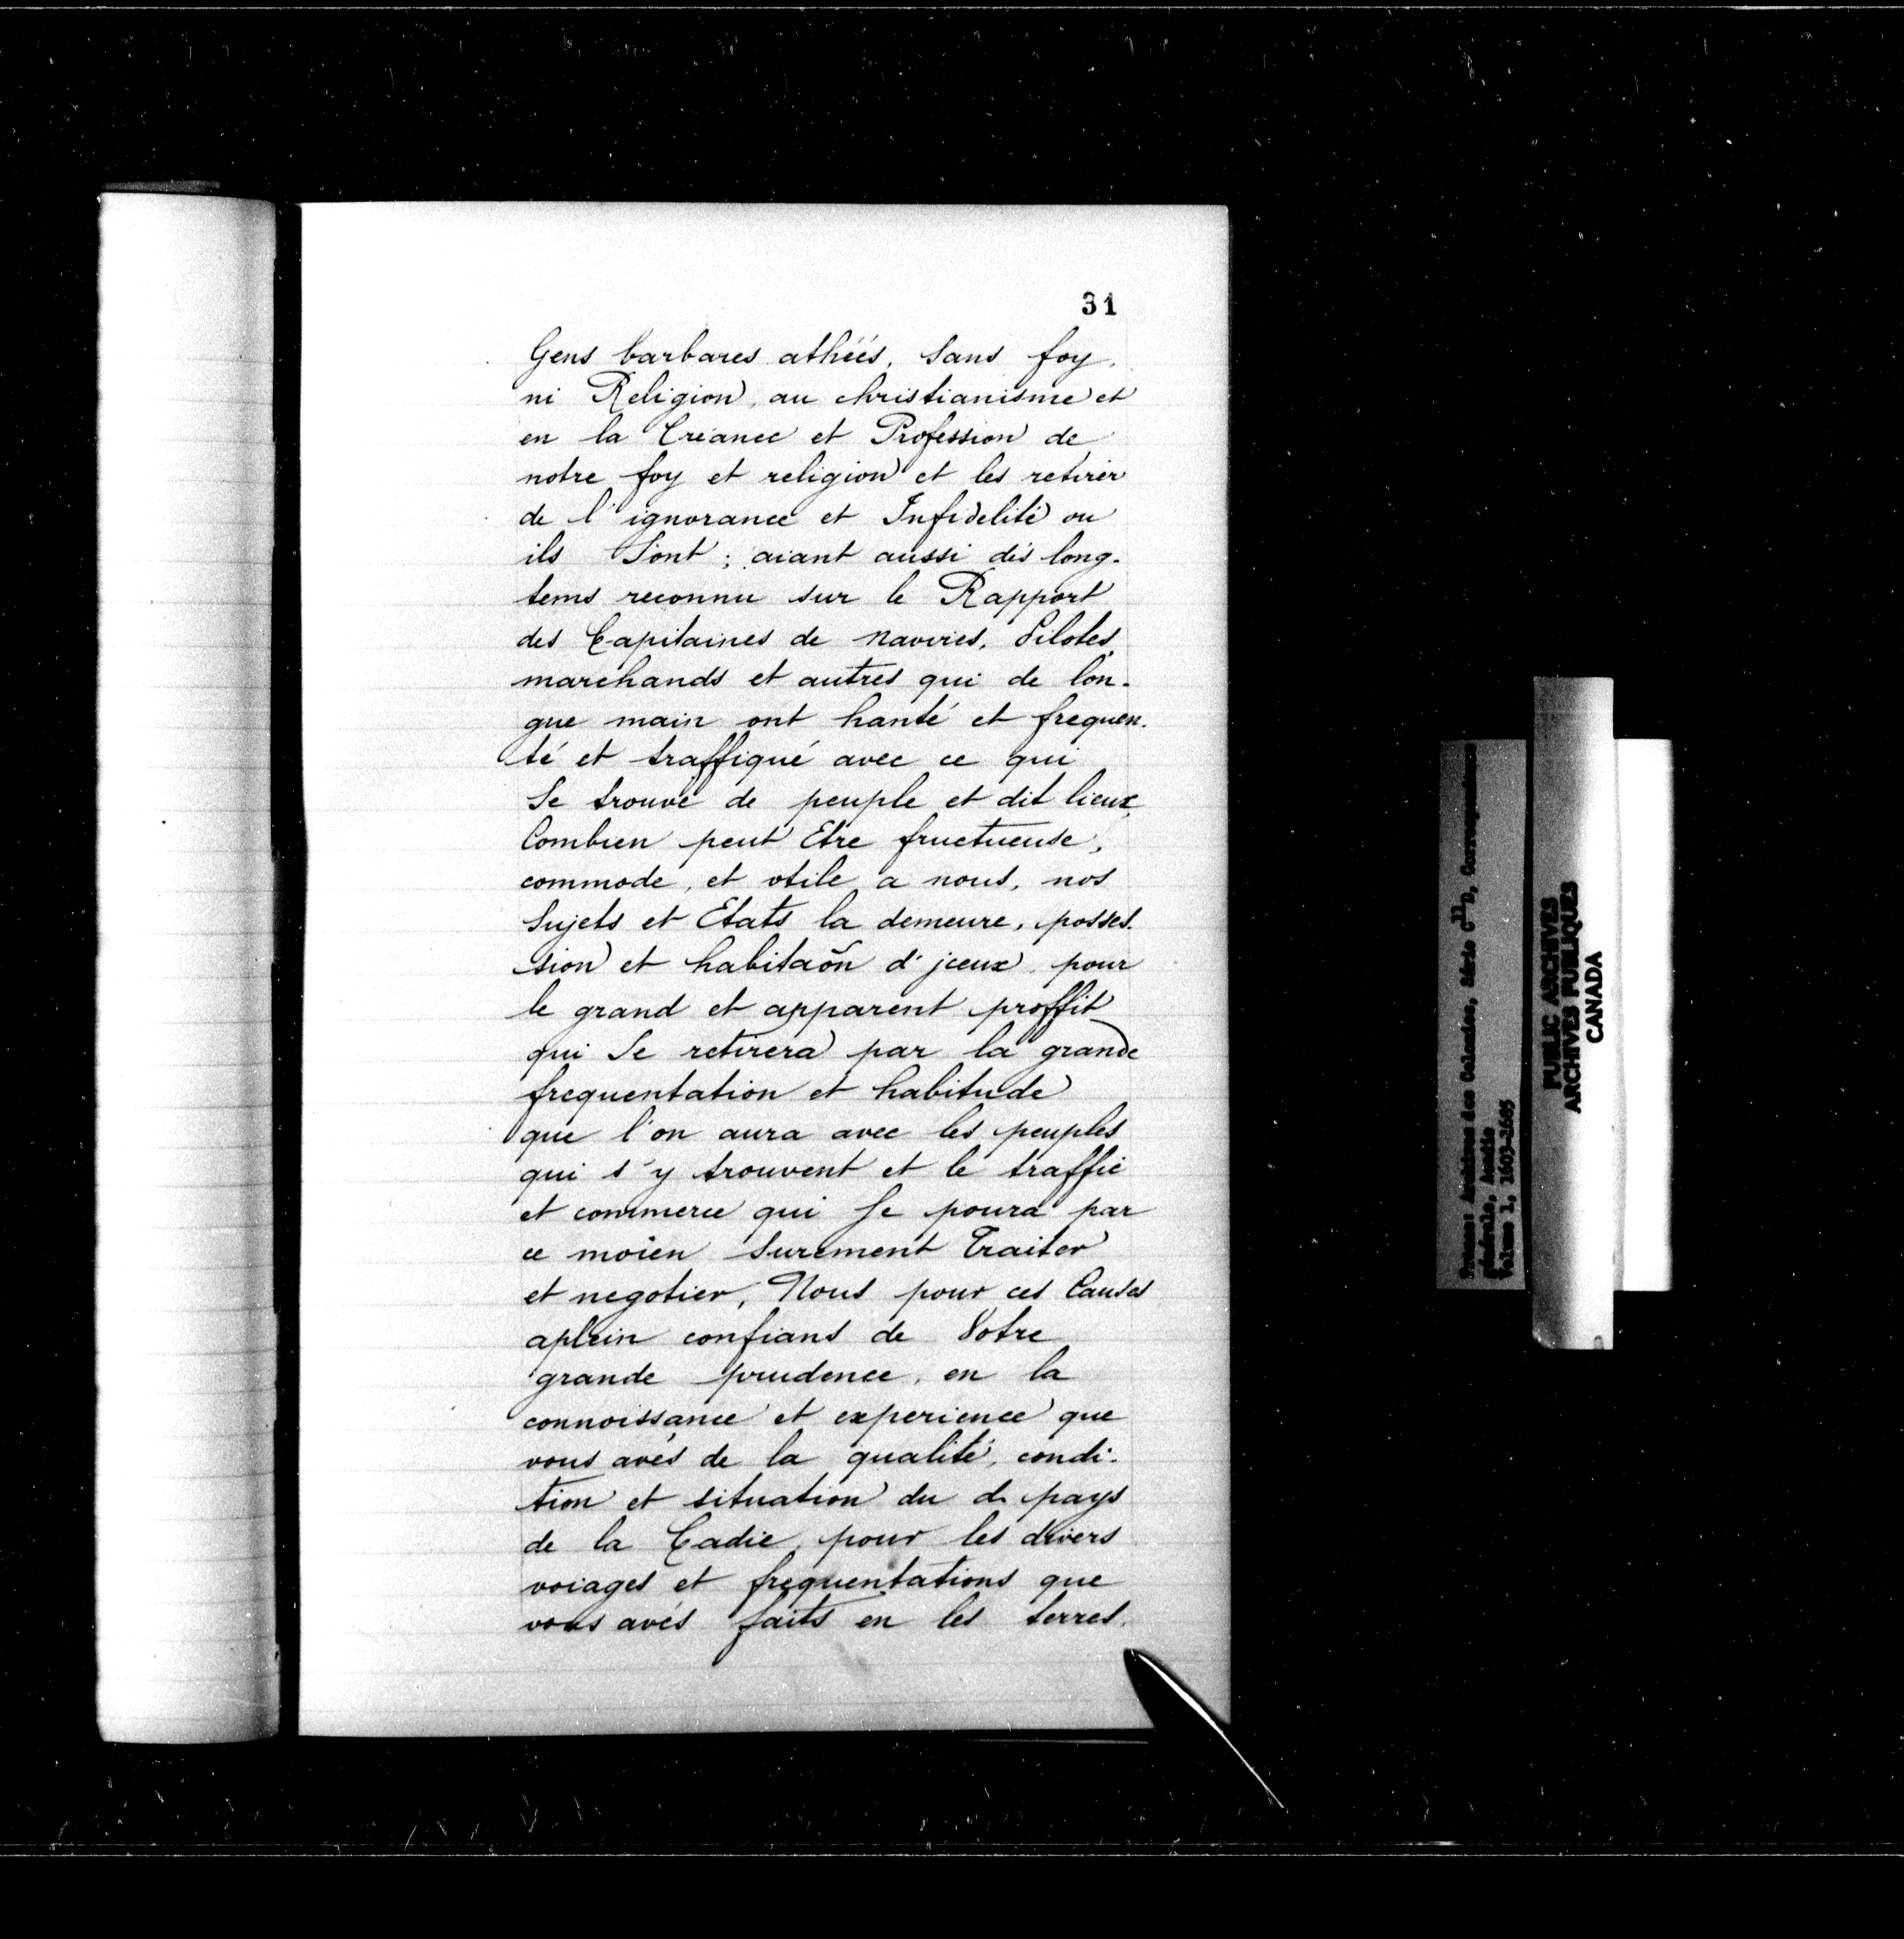 31
Gens barbares athéés, Sans foy,
ni Religion, au christianisme et
en la Créance et Profession de
notre foy et religion et les retirer
de l'ignorance et Infidelité ou
ils Sont; aiant aussi dès long-
tems reconnu sur le Rapport
des Capitaines de navires, Pilotes,
marchands et autres qui de lon-
gue main ont hanté et frequen-
té et traffiqué avec ce qui
Se trouve de peuple et dit lieux,
Combien peut Etre fructueuse,
commode, et utile a nous, nos
Sujets et Etats la demeure, posses-
sion et habitaõn d'jceux pour
le grand et apparent proffit
qui Se retirera par la grande
frequentation et habitude
que l'on aura avec les peuples
qui s'y trouvent et le traffic
et commerce qui Se poura par
ce moien Surement Traiter
et negotier, Nous pour ces Causes
aplein confians de Votre
grande prudence, en la
connoissance et experience que
vous avés de la qualité, condi-
tion et situation du d. pays
de la Cadie, pour les divers
voiages et frequentations que
vous avés faits en les terres.
France: Archives des Colonies, Série C¹¹D, Correspondance
générale, Acadie
Volume 1, 1603-1685
PUBLIC ARCHIVES
ARCHIVES PUBLIQUES
CANADA